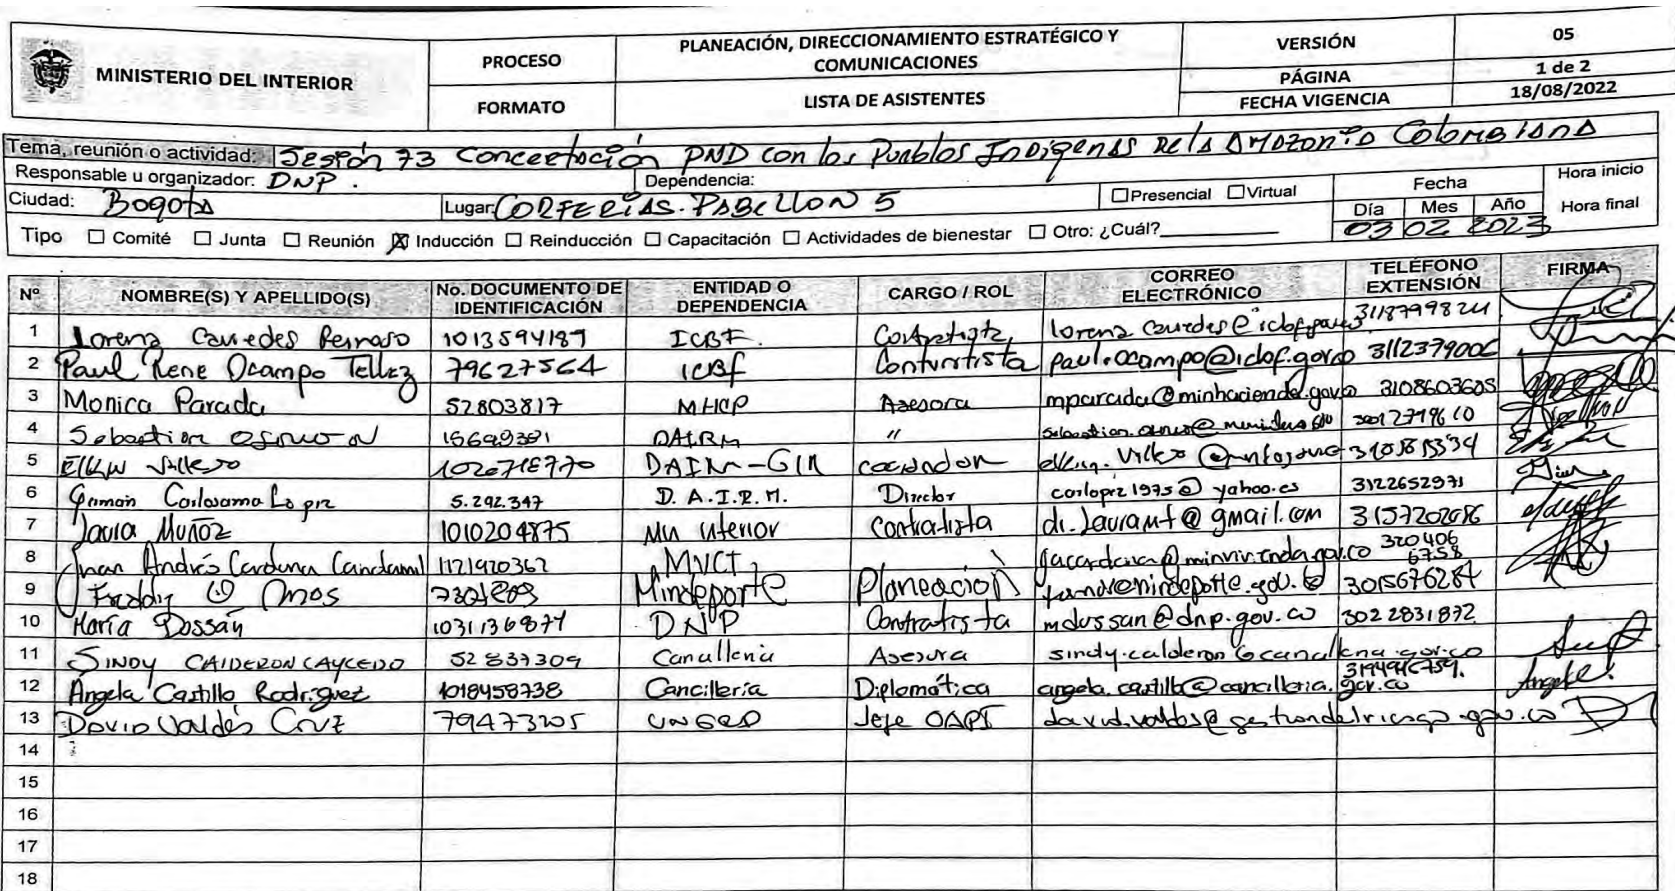 MINISTERIO DEL INTERIOR
PROCESO
PLANEACIÓN, DIRECCIONAMIENTO ESTRATÉGICO Y
COMUNICACIONES
VERSIÓN
05
PÁGINA
1 de 2
FORMATO
LISTA DE ASISTENTES
FECHA VIGENCIA
18/08/2022
Tema, reunión o actividad: Sesión 73 Concertación PND con los Pueblos Indígenas de la Amazonia Colombiana
Responsable u organizador: DNP.
Dependencia:
Ciudad: Bogotá
Lugar: CORFERIAS. PABELLON 5
Presencial Virtual
Fecha
Día Mes Año
03 02 2023
Hora inicio
Hora final
Tipo Comité Junta Reunión Inducción Reinducción Capacitación Actividades de bienestar Otro: ¿Cuál?
Nº NOMBRE(S) Y APELLIDO(S) No. DOCUMENTO DE IDENTIFICACIÓN ENTIDAD O DEPENDENCIA CARGO / ROL CORREO ELECTRÓNICO TELÉFONO EXTENSIÓN FIRMA
1 Lorena 1013594189 ICBF. Contratista 3118799824
2 Paul Rene Ocampo Tellez 79627564 ICBF Contratista paul.ocampo@icbf.gov.co 311237900
3 Monica Parada 52803817 MHCP Asesora mparada@minhacienda.gov.co 3108603605
4 Sebastian DAIRM "
5 DAIRM
6 Carlosama Lopez 5.292.347 D. A. I. R. M. Director carlopez1975@yahoo.es 3122652971
7 Laura Muñoz 1010204875 Min interior Contratista di.lauramt@gmail.com 3157202686
8 Juan Andrés Cardona Candamil 1121920362 MVCT jacardona@minvivienda.gov.co 320406
6758
9 Freddy Mindeporte Planeación 3015676284
10 María Dussán 1031136877 DNP Contratista mdussan@dnp.gov.co 3022831872
11 SINDY CALDERON CAYCEDO 52837309 Cancilleria Asesora sindy.calderon@cancilleria.gov.co
12 Angela Castillo Rodriguez 1018458738 Cancillería Diplomática angela.castillo@cancilleria.gov.co Angela C.
13 David Valdés Cruz 79473205 UNGRD Jefe OAPI david.valdes@gestiondelriesgo.gov.co
14
15
16
17
18